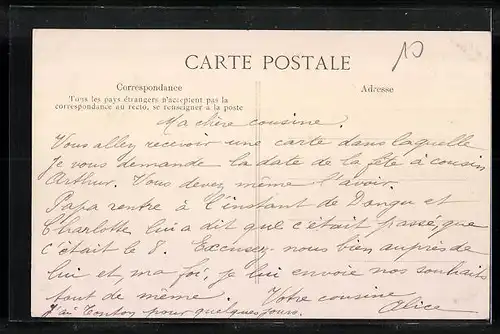 CARTE POSTALE
Correspondance
Adresse
Tous les pays étrangers n'acceptent pas la
correspondance au recto, se renseigner à la poste
Ma chère cousine.
Vous allez recevoir une carte dans laquelle
Je vous demande la date de la fête à cousin
Arthur. Vous devez même l'avoir.
Papa rentre à l'instant de Dangu et
Charlotte lui a dit que c'était passé, que
c'était le 8. Excusez-nous bien auprès de
lui et, ma foi, je lui envoie nos souhaits
tout de même. Votre cousine
Alice
J'ai Tonton pour quelques jours.